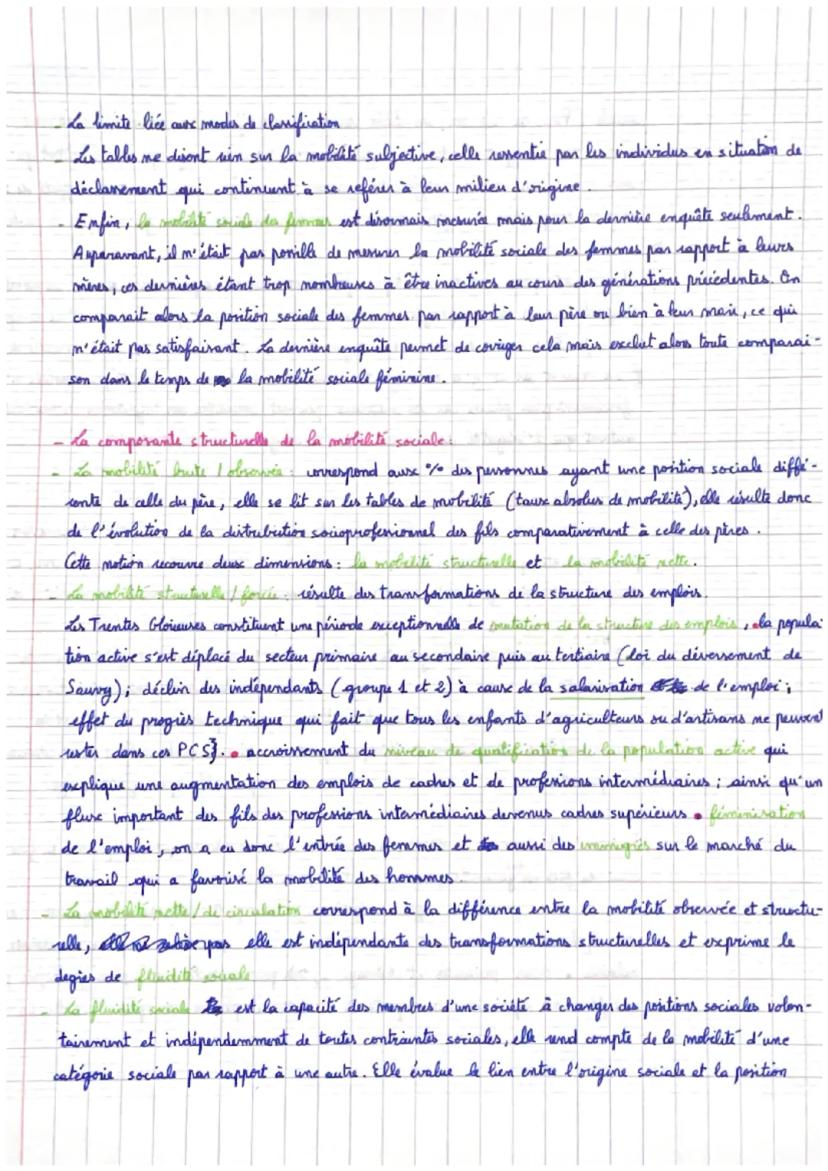 - La limite liée aux modes de classification
- Les tables ne disent rien sur la mobilité subjective, celle ressentie par les individus en situation de
déclassement qui continuent à se référer à leur milieu d'origine.
- Enfin, la mobilité sociale des femmes est désormais mesurée mais pour la dernière enquête seulement.
Auparavant, il n'était pas possible de mesurer la mobilité sociale des femmes par rapport à leurs
mères, ces dernières étant trop nombreuses à être inactives au cours des générations précédentes. On
comparait alors la position sociale des femmes par rapport à leur père ou bien à leur mari, ce qui
n'était pas satisfaisant. La dernière enquête permet de corriger cela mais exclut alors toute comparai-
son dans le temps de la mobilité sociale féminine.
- La composante structurelle de la mobilité sociale :
- La mobilité brute / observée : correspond aux % des personnes ayant une position sociale diffé-
rente de celle du père, elle se lit sur les tables de mobilité (taux absolus de mobilité), elle résulte donc
de l'évolution de la distrubution socioprofesionnel des fils comparativement à celle des pères.
Cette notion recouvre deux dimensions : la mobilité structurelle et la mobilité nette.
- La mobilité structurelle / forcée : résulte des transformations de la structure des emplois.
Les Trentes Glorieuses constituent une période exceptionnelle de mutation de la structure des emplois, la popula-
tion active s'est déplacé du secteur primaire au secondaire puis au tertiaire (loi du déversement de
Sauvy) ; déclin des indépendants (groupe 1 et 2) à cause de la salarisation de l'emploi ;
effet du progrès technique qui fait que tous les enfants d'agriculteurs ou d'artisans ne peuvent
rester dans ces PCS}. • accroissement du niveau de qualification de la population active qui
explique une augmentation des emplois de cadres et de professions intermédiaires ; ainsi qu'un
flux important des fils des professions intermédiaires devenus cadres supérieurs • féminisation
de l'emploi, on a eu donc l'entrée des femmes et aussi des immigrés sur le marché du
travail qui a favorisé la mobilité des hommes.
- La mobilité nette / de circulation correspond à la différence entre la mobilité observée et structu-
relle, elle est indépendante des transformations structurelles et exprime le
degrès de fluidité sociale
- La fluidité sociale est la capacité des membres d'une société à changer des positions sociales volon-
tairement et indépendemment de toutes contraintes sociales, elle rend compte de la mobilité d'une
catégorie sociale par rapport à une autre. Elle évalue le lien entre l'origine sociale et la position